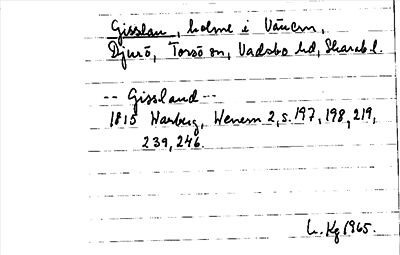 Gisslan, holme i Vänern,
Djurö, Torsö sn, Vadsbo hd, Skarab l.
-- Gissland --
1815 Warberg, Wenern 2, s. 197, 198, 219,
239, 246.
L. Kg 1965.